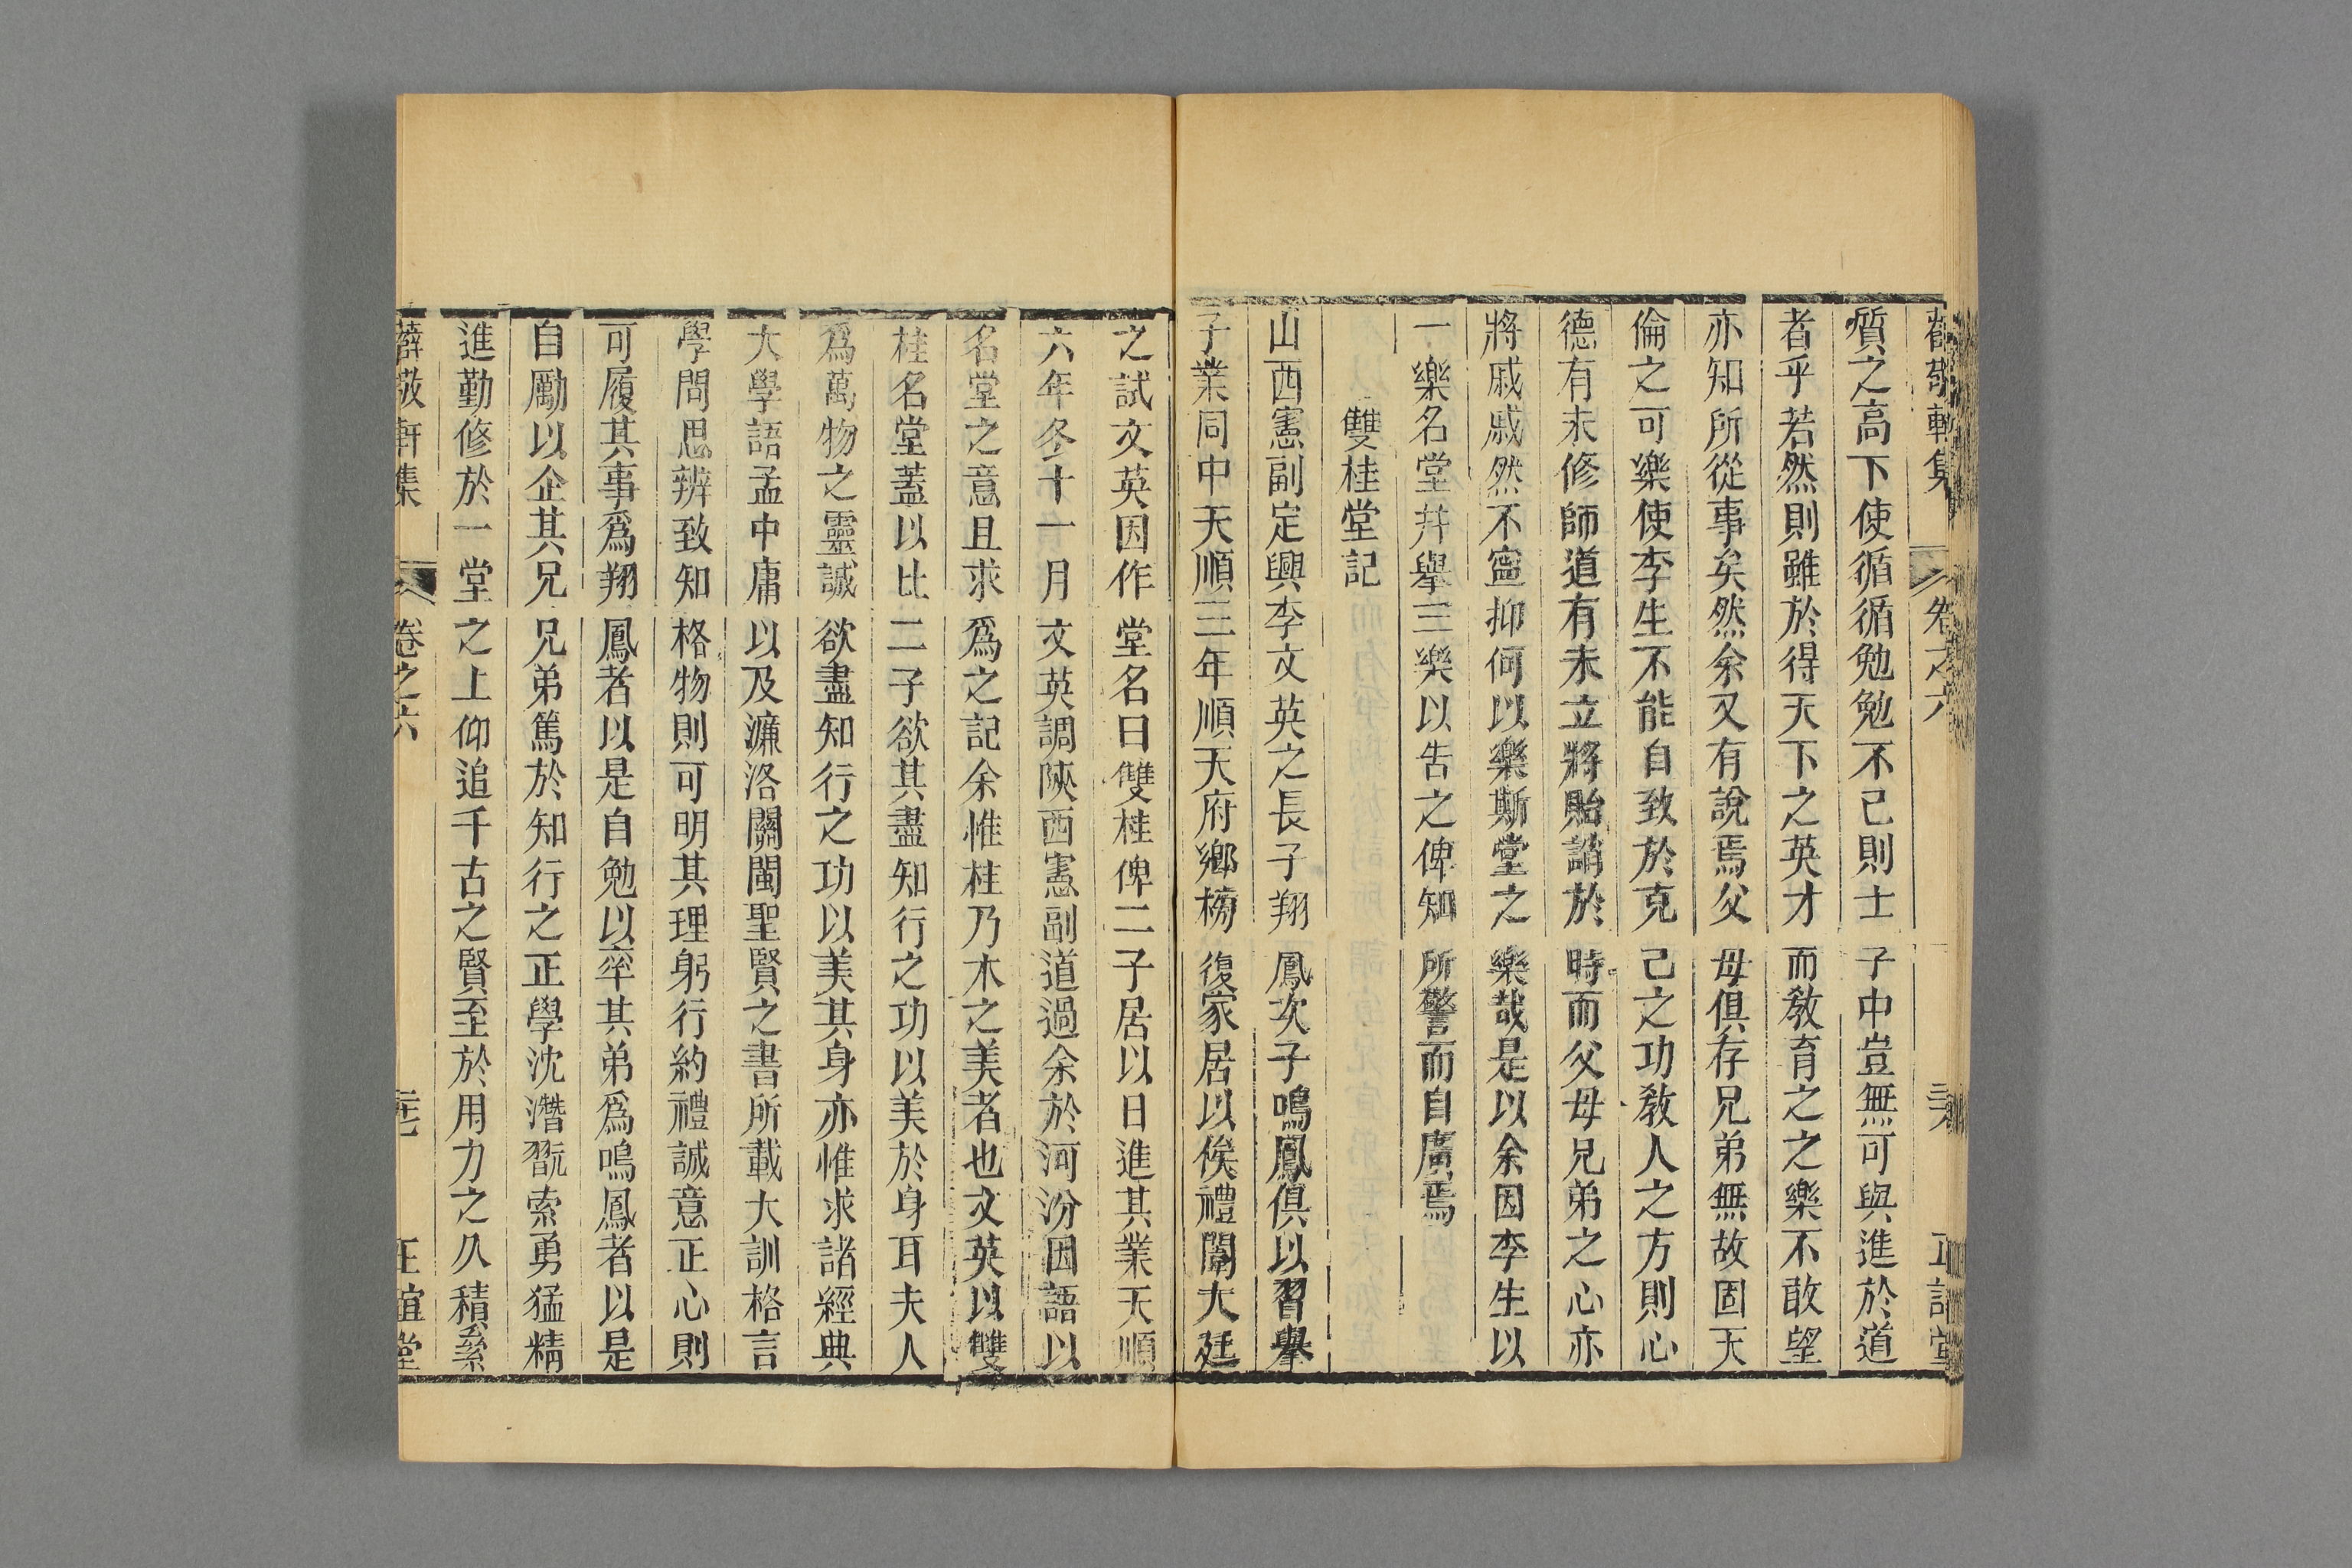 薛敬軒集 卷之六 正誼堂
質之高下使循循勉勉不已則士子中豈無可與進於道
者乎若然則雖於得天下之英才而教育之之樂不敢望
亦知所從事矣然余又有說焉父母俱存兄弟無故固天
倫之可樂使李生不能自致於克己之功教人之方則心
德有未修師道有未立將貽誚於時而父母兄弟之心亦
將戚戚然不寧抑何以樂斯堂之樂哉是以余因李生以
一樂名堂并舉三樂以告之俾知所警而自廣焉
雙桂堂記
山西憲副定興李文英之長子翔鳳次子鳴鳳俱以習舉
子業同中天順三年順天府鄉榜復家居以俟禮闈大廷
之試文英因作堂名曰雙桂俾二子居以日進其業天順
六年冬十一月文英調陝西憲副道過余於河汾因語以
名堂之意且求爲之記余惟桂乃木之美者也文英以雙
桂名堂蓋以比二子欲其盡知行之功以美於身耳夫人
爲萬物之靈誠欲盡知行之功以美其身亦惟求諸經典
大學語孟中庸以及濂洛關閩聖賢之書所載大訓格言
學問思辨致知格物則可明其理躬行約禮誠意正心則
可履其事爲翔鳳者以是自勉以率其弟爲鳴鳳者以是
自勵以企其兄兄弟篤於知行之正學沈潛翫索勇猛精
進勤修於一堂之上仰追千古之賢至於用力之久積絫
薛敬軒集 卷之六 正誼堂